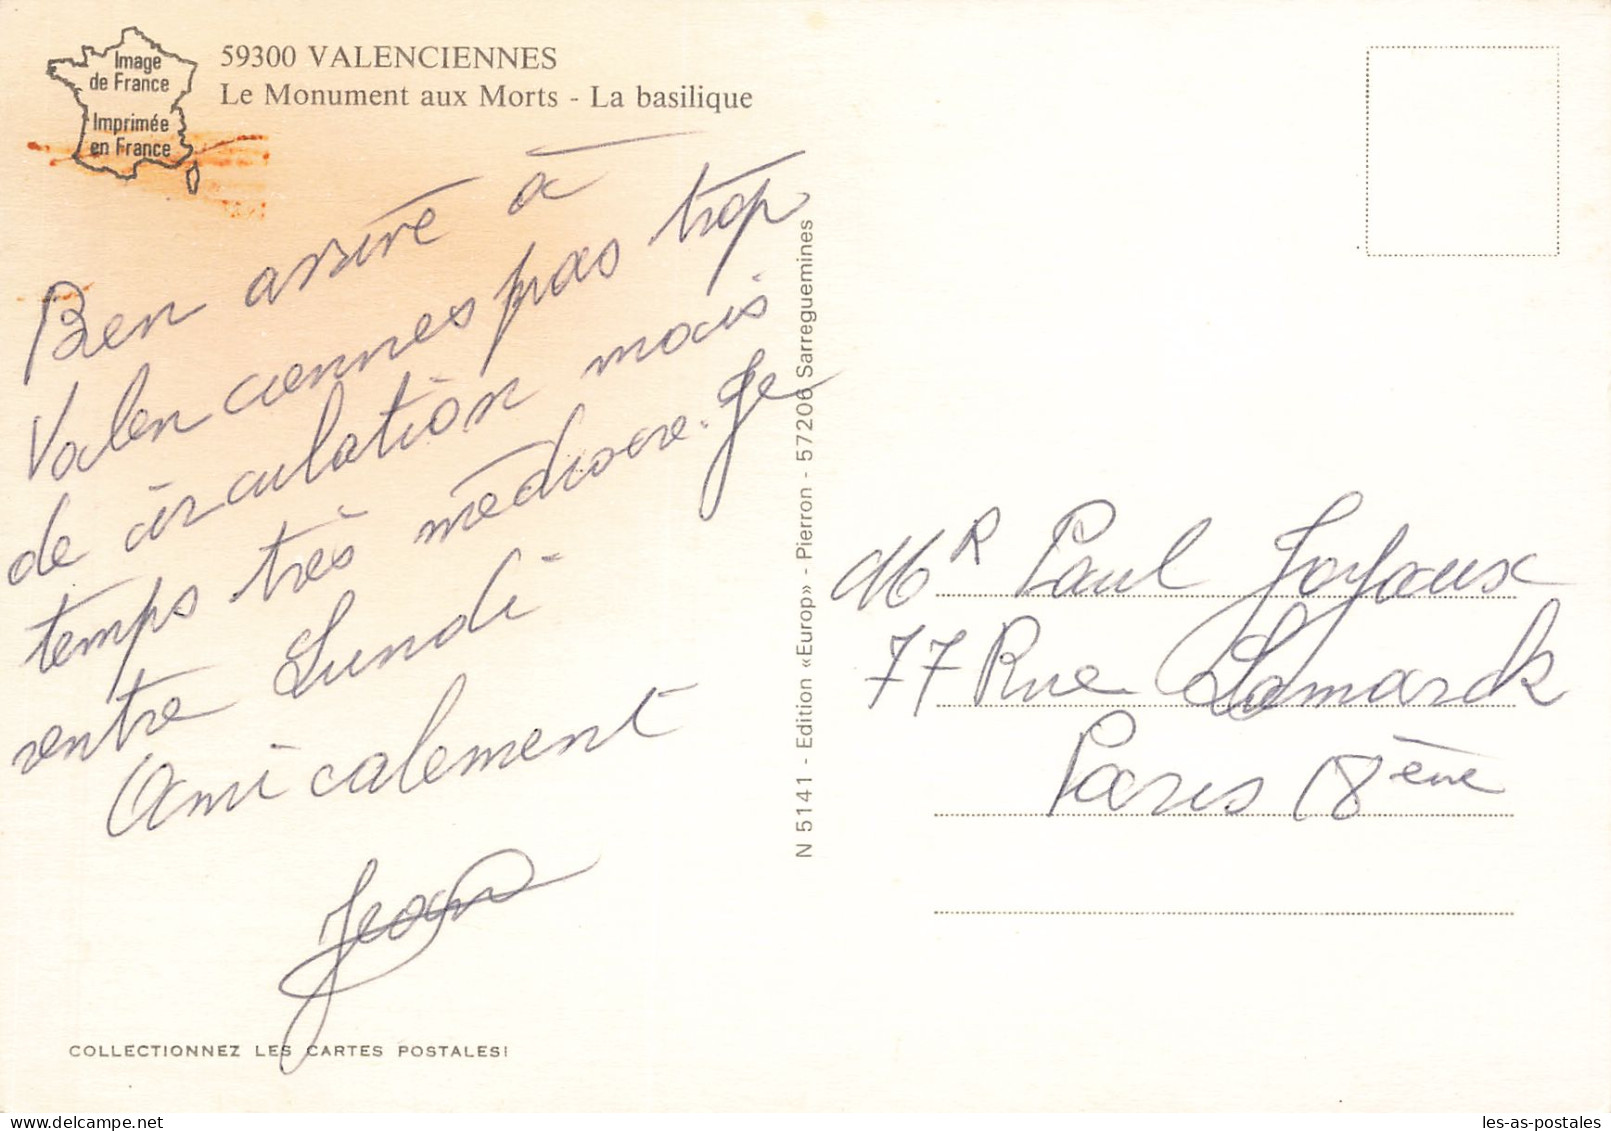 Image
de France
Imprimée
en France
59300 VALENCIENNES
Le Monument aux Morts - La basilique
Ben arrivé à
Valenciennes pas trop
de circulation mais
temps très médiocre. Je
rentre Lundi
Amicalement
Jean
COLLECTIONNEZ LES CARTES POSTALES!
N 5141 - Edition «Europ» - Pierron - 57206 Sarreguemines
Mr Paul Joyoux
77 Rue Lamarck
Paris 18ème
les-as-postales